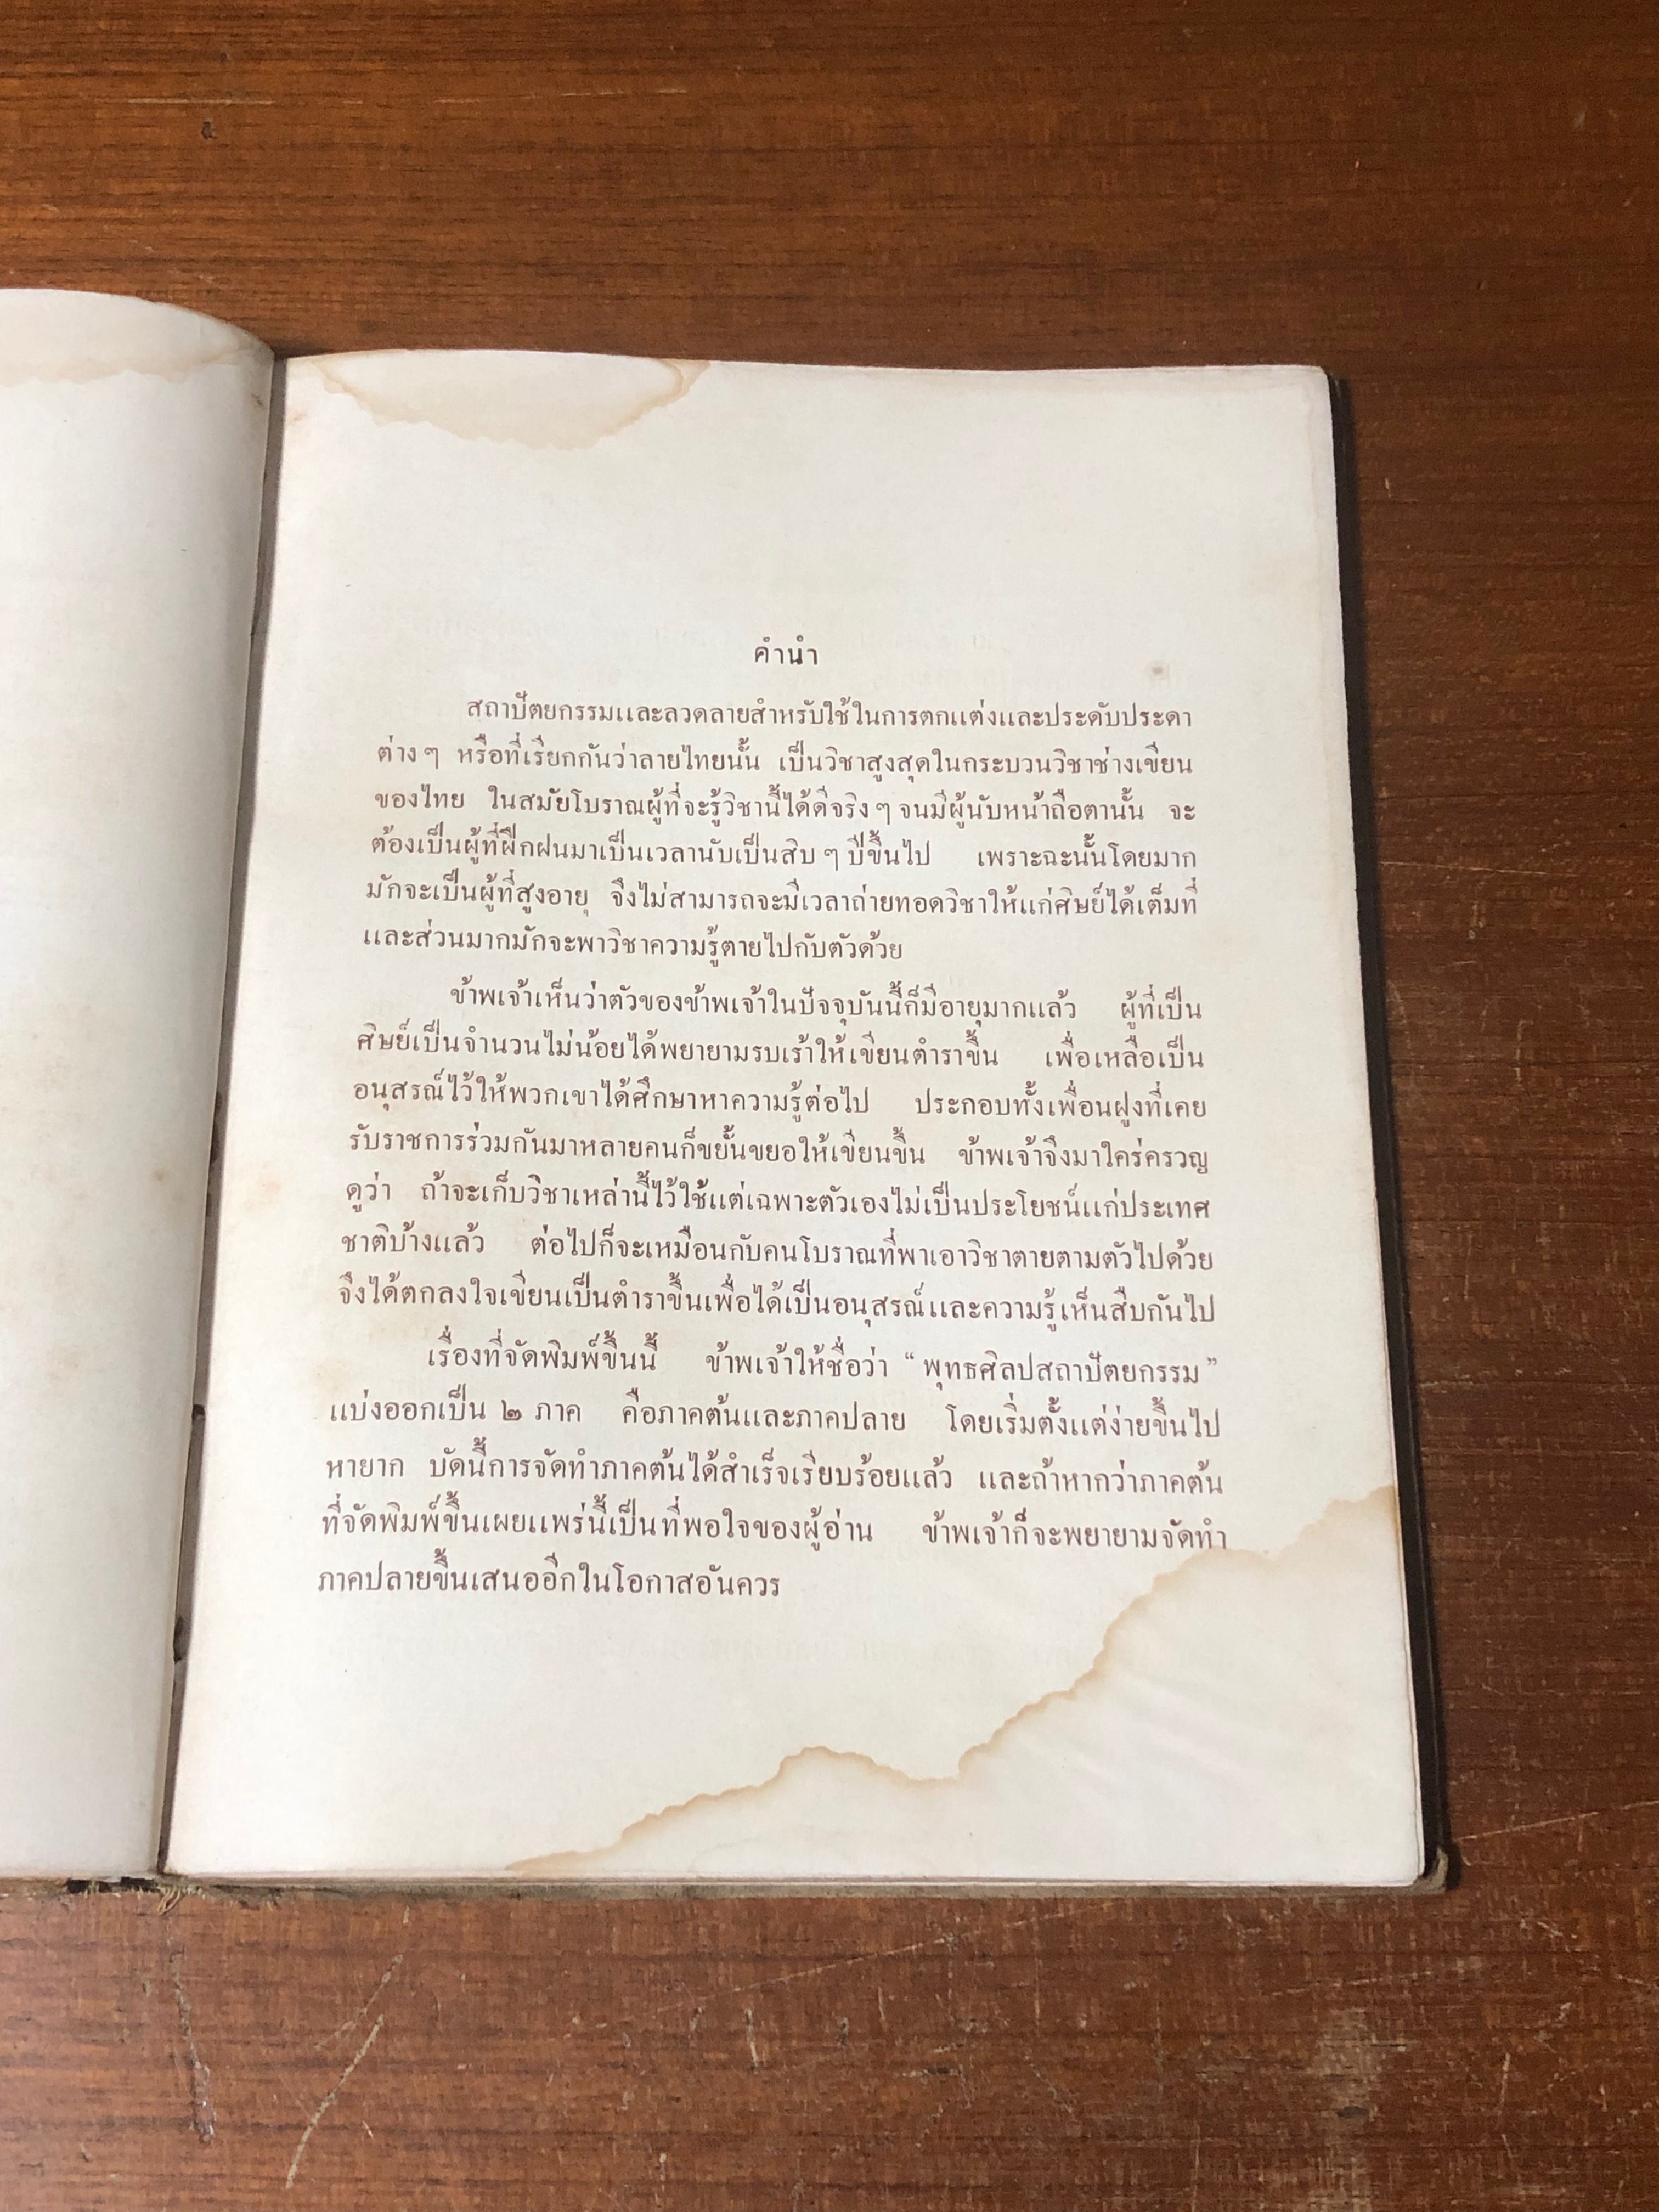 คำนำ
สถาปัตยกรรมและลวดลายสำหรับใช้ในการตกแต่งและประดับประดา
ต่าง ๆ หรือที่เรียกกันว่าลายไทยนั้น เป็นวิชาสูงสุดในกระบวนวิชาช่างเขียน
ของไทย ในสมัยโบราณผู้ที่จะรู้วิชานี้ได้ดีจริง ๆ จนมีผู้นับหน้าถือตานั้น จะ
ต้องเป็นผู้ที่ฝึกฝนมาเป็นเวลานับเป็นสิบ ๆ ปีขึ้นไป เพราะฉะนั้นโดยมาก
มักจะเป็นผู้ที่สูงอายุ จึงไม่สามารถจะมีเวลาถ่ายทอดวิชาให้แก่ศิษย์ได้เต็มที่
และส่วนมากมักจะพาวิชาความรู้ตายไปกับตัวด้วย
ข้าพเจ้าเห็นว่าตัวของข้าพเจ้าในปัจจุบันนี้ก็มีอายุมากแล้ว ผู้ที่เป็น
ศิษย์เป็นจำนวนไม่น้อยได้พยายามรบเร้าให้เขียนตำราขึ้น เพื่อเหลือเป็น
อนุสรณ์ไว้ให้พวกเขาได้ศึกษาหาความรู้ต่อไป ประกอบทั้งเพื่อนฝูงที่เคย
รับราชการร่วมกันมาหลายคนก็ขยั้นขยอให้เขียนขึ้น ข้าพเจ้าจึงมาใคร่ครวญ
ดูว่า ถ้าจะเก็บวิชาเหล่านี้ไว้ใช้แต่เฉพาะตัวเองไม่เป็นประโยชน์แก่ประเทศ
ชาติบ้างแล้ว ต่อไปก็จะเหมือนกับคนโบราณที่พาเอาวิชาตายตามตัวไปด้วย
จึงได้ตกลงใจเขียนเป็นตำราขึ้นเพื่อได้เป็นอนุสรณ์และความรู้เห็นสืบกันไป
เรื่องที่จัดพิมพ์ขึ้นนี้ ข้าพเจ้าให้ชื่อว่า “ พุทธศิลปสถาปัตยกรรม ”
แบ่งออกเป็น ๒ ภาค คือภาคต้นและภาคปลาย โดยเริ่มตั้งแต่ง่ายขึ้นไป
หายาก บัดนี้การจัดทำภาคต้นได้สำเร็จเรียบร้อยแล้ว และถ้าหากว่าภาคต้น
ที่จัดพิมพ์ขึ้นเผยแพร่นี้เป็นที่พอใจของผู้อ่าน ข้าพเจ้าก็จะพยายามจัดทำ
ภาคปลายขึ้นเสนออีกในโอกาสอันควร